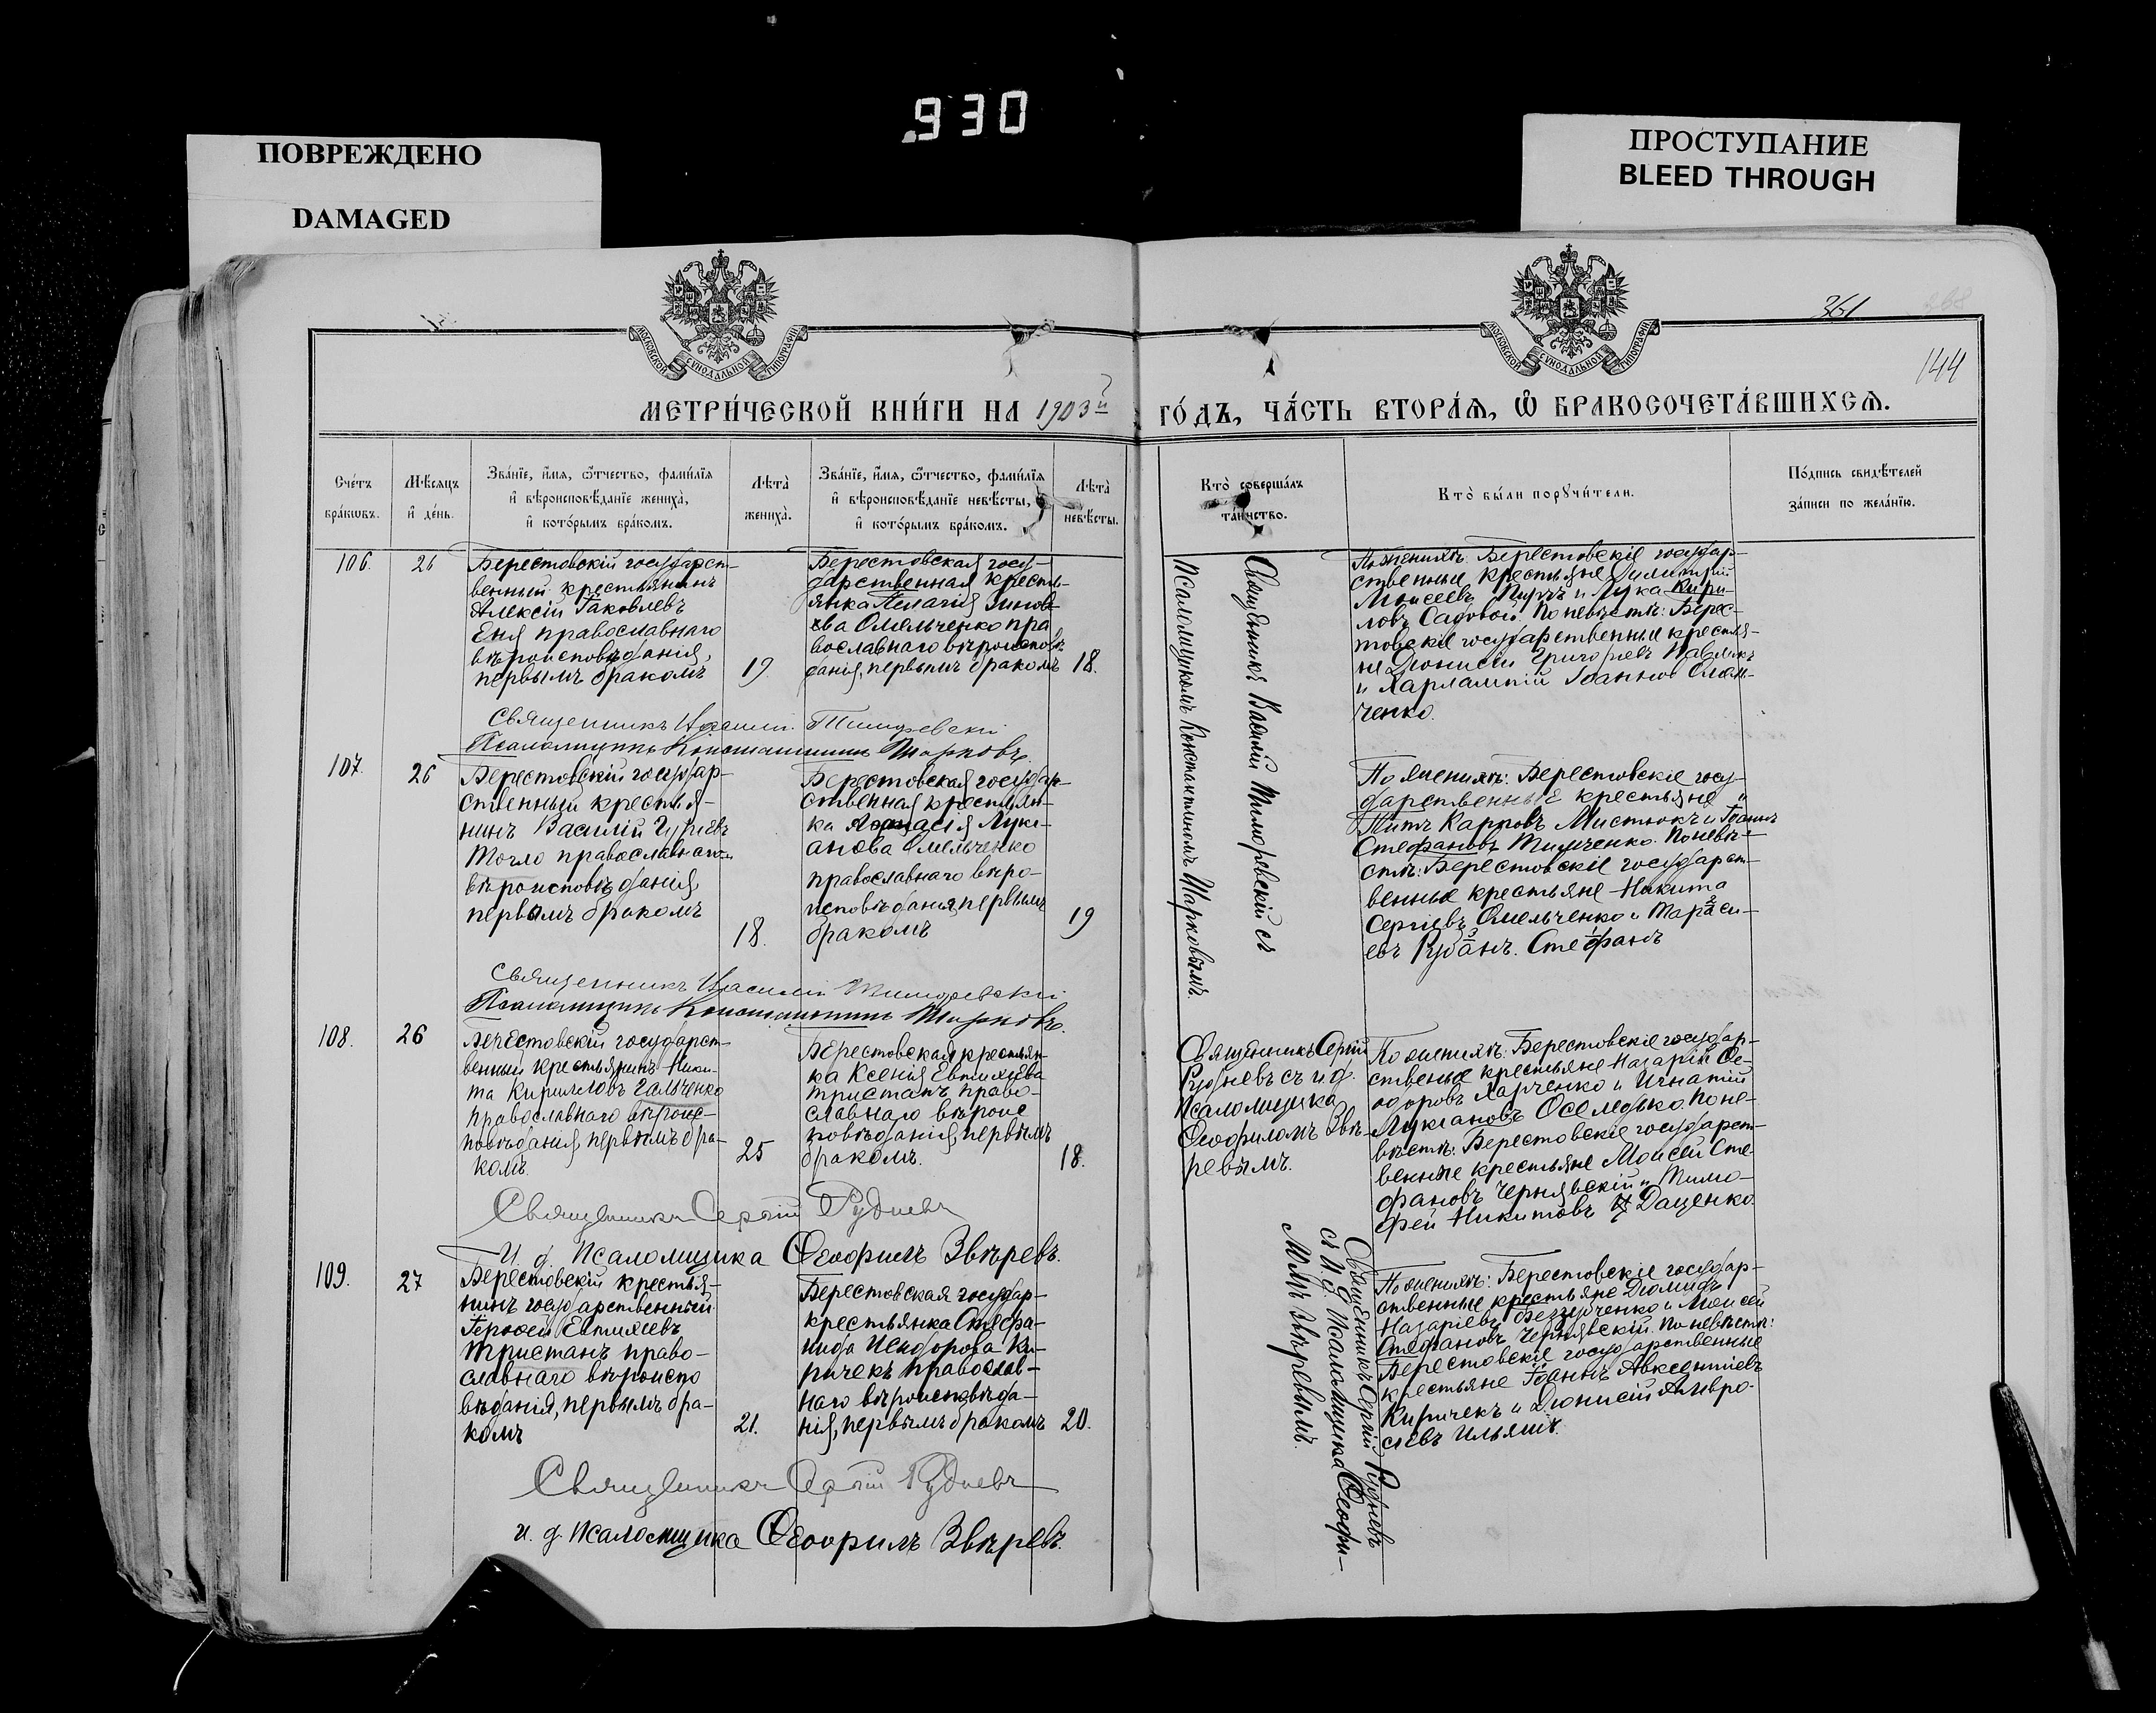 930
ПОВРЕЖДЕНО
DAMAGED
ПРОСТУПАНИЕ
BLEED THROUGH
361
144
МЕТРИ́ЧЕСКОЙ КНИ́ГИ НА 1903й ГО́ДЪ, ЧА́СТЬ ВТОРА́Я, Ѡ БРАКОСОЧЕТА́ВШИХСЯ.
Сче́тъ
бра́кѡвъ.
Мѣ́сяцъ
и҆ де́нь.
Зва́нїе, и҆́мя, ѻ҆́тчество, фами́лїя
и҆ вѣроисповѣ́данїе жениха̀,
и҆ кото́рымъ бра́комъ.
Лѣта̀
жениха̀.
Зва́нїе, и҆́мя, ѻ҆́тчество, фами́лїя
и҆ вѣроисповѣ́данїе невѣ́сты,
и҆ кото́рымъ бра́комъ.
Лѣта̀
невѣ́сты.
Кто̀ соверша́лъ
та́инство.
Кто̀ бы́ли порꙋчи́тели.
По́дпись свидѣ́телей
за́писи по жела́нїю.
106.
26
Берестовскій государст-
венный крестьянинъ
Алексій Іаковлевъ
Еня православнаго
вѣроисповѣданія,
первымъ бракомъ
19
Берестовская госу-
дарственная кресть-
янка Пелагія Зинов
ва Омельченко пра
вославнаго вѣроисповѣ-
данія, первымъ бракомъ
18.
Священникъ Василій Тиморевскій съ
Псаломщикомъ Константиномъ Шарковымъ.
По женихѣ: Берестовскіе государ-
ственные крестьяне Димитрій
Моисеевъ и Лука Кири-
ловъ Садовой. По невѣстѣ: Берес-
товскіе государственные крестья-
не Діонисій Григорьевъ Павликъ
и Харлампій Іоанновъ
ченко.
Священникъ Василій Тиморевскій
Псаломщикъ Константинъ Шарковъ.
107.
26
Берестовскій государ-
ственный крестья-
нинъ Василій Гуріевъ
Могло православнаго
вѣроисповѣданія,
первымъ бракомъ
18.
Берестовская государ-
ственная крестьян-
ка Луки-
анова Омельченко
православнаго вѣро-
исповѣданія, первымъ
бракомъ
19
По женихѣ: Берестовскіе госу-
дарственные крестьяне
Титъ Карповъ Мистюкъ и Іоаннъ
Стефановъ Тимченко. По невѣ-
стѣ: Берестовскіе государст-
венные крестьяне Никита
Сергіевъ Омельченко и Тараси-
евъ Рубанъ. Стефанъ
Священникъ Василій Тиморевскій
Псаломщикъ Константинъ Шарковъ.
108.
26
Берестовскій государст-
венный крестьянинъ Ники-
та Кирилловъ Гальченко
православнаго вѣроис-
повѣданія, первымъ бра-
комъ.
25
Берестовская крестьян-
ка Ксенія Евтихіева
Тристанъ право-
славнаго вѣроис
повѣданія, первымъ
бракомъ.
18.
Священникъ Сергій
Рудневъ съ и. д.
псаломщика
Ѳеофиломъ Звѣ-
ревымъ.
По женихѣ: Берестовскіе государ-
ственые крестьяне Назарій Ѳе-
одоровъ Харченко и Игнатій
Лукіановъ Оселедько. По не-
вѣстѣ: Берестовскіе государст-
венные крестьяне Моисей Сте-
фановъ Чернявскій и Тимо-
фей Никитовъ Даценко.
Священникъ Сергій Рудневъ
И. д. псаломщика Ѳеофилъ Звѣревъ.
109.
27
Берестовскій крестья-
нинъ государственный
Іероѳей Евтихіевъ
Тристанъ право-
славнаго вѣроиспо
вѣданія, первымъ бра-
комъ
21.
Берестовская государ-
крестьянка Стефа-
нида Исидорова Ки-
ричекъ православ-
наго вѣроисповѣда-
нія, первымъ бракомъ
20.
Священникъ Сергій Рудневъ
съ и. д. псаломщика Ѳеофи-
ломъ Звѣревымъ.
По женихѣ: Берестовскіе государ-
ственные крестьяне Діомидъ
Назаріевъ Беззубченко и Моисей
Стефановъ Чернявскій. По невѣстѣ:
Берестовскіе государственные
крестьяне Іоаннъ Авксентіевъ
Киричекъ и Діонисій Амвро-
сіевъ Ильяшъ.
Священникъ Сергій Рудневъ
и. д. псаломщика Ѳеофилъ Звѣревъ.